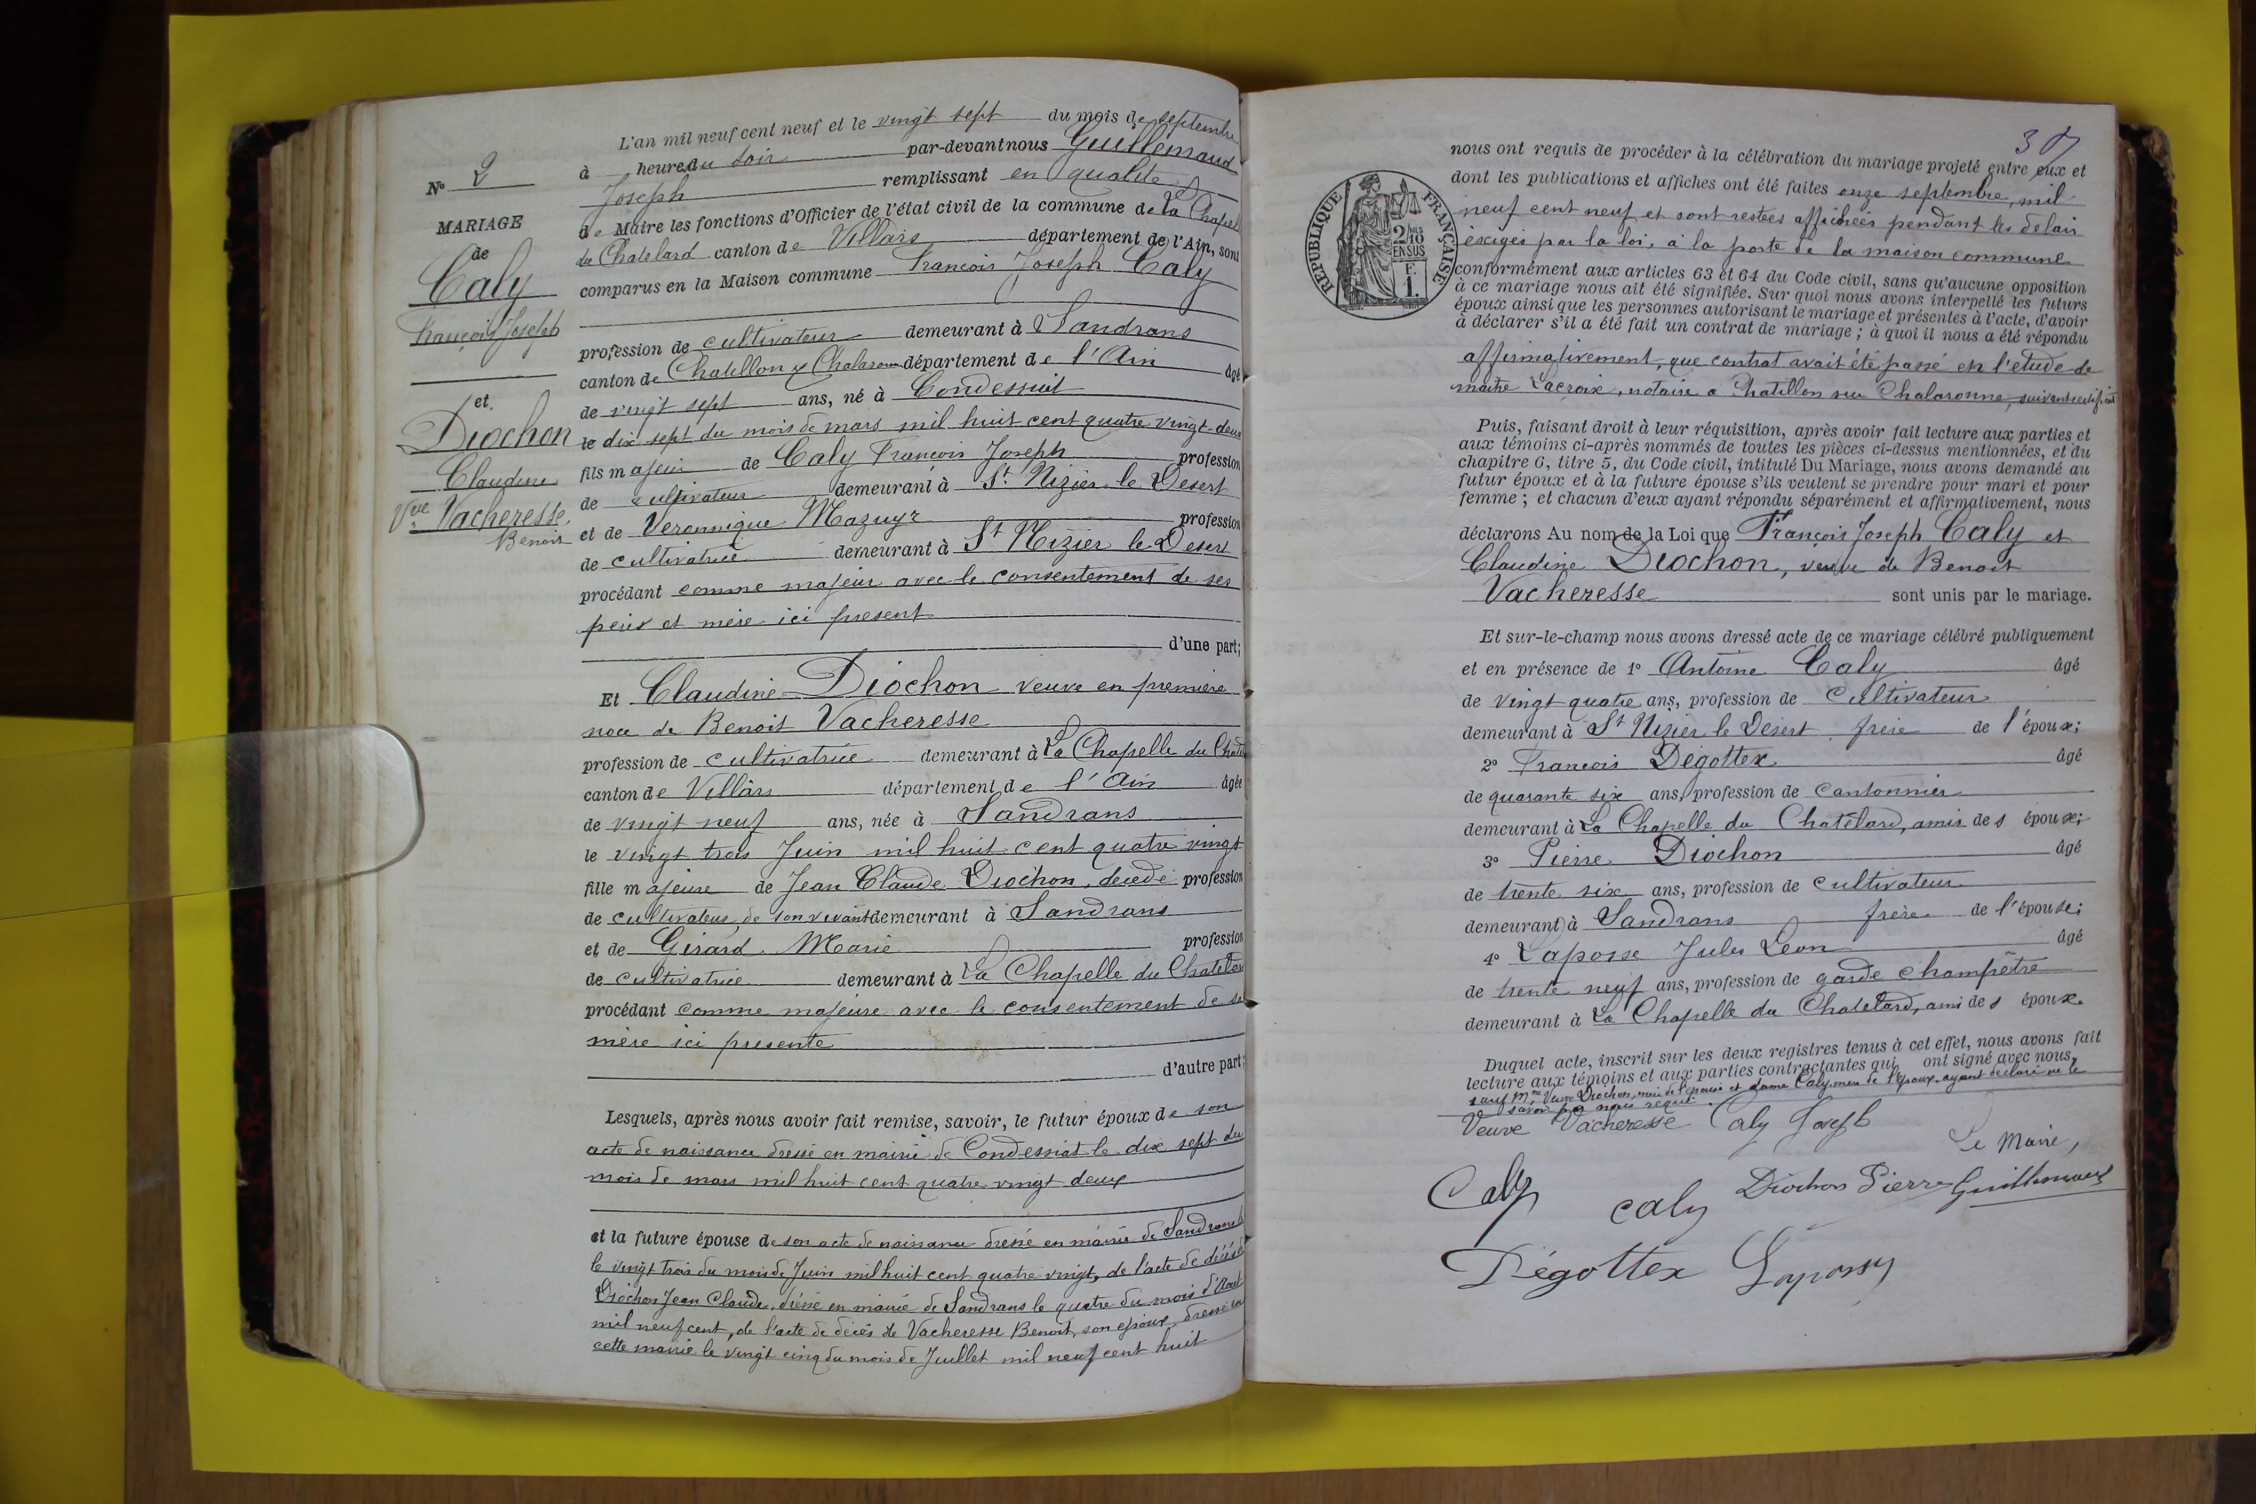 N° 2
MARIAGE
de
Caly
François Joseph
et
Diochon
Claudine
Vve Vacheresse
Benoit
L'an mil neuf cent neuf et le vingt sept du mois de septembre
à heure du soir par-devant nous Guillemaud
Joseph remplissant en qualité
de Maire les fonctions d'Officier de l'état civil de la commune de La Chapel
du Chatelard canton de Villars département de l'Ain, sont
comparus en la Maison commune François Joseph Caly
profession de cultivateur demeurant à Sandrans
canton de Chatillon s/ Chalaronne département de l'Ain âgé
de vingt sept ans, né à Condessiat
le dix sept du mois de mars mil huit cent quatre vingt deux
fils majeur de Caly François Joseph profession
de cultivateur demeurant à St Nizier le Desert
et de Veronnique Mazuyr profession
de cultivatrice demeurant à St Nizier le Desert
procédant comme majeur avec le consentement de ses
père et mère ici present
d'une part;
Et Claudine Diochon veuve en première
noce de Benoit Vacheresse
profession de cultivatrice demeurant à La Chapelle du Chate
canton de Villars département de l'Ain âgée
de vingt neuf ans, née à Sandrans
le vingt trois Juin mil huit cent quatre vingt
fille majeure de Jean Claude Diochon, décédé profession
de cultivateur de son vivant demeurant à Sandrans
et de Girard Marie profession
de cultivatrice demeurant à La Chapelle du Chatelar
procédant comme majeure avec le consentement de sa
mère ici presente
d'autre part;
Lesquels, après nous avoir fait remise, savoir, le futur époux de son
acte de naissance dressé en mairie de Condessiat le dix sept du
mois de mars mil huit cent quatre vingt deux
et la future épouse de son acte de naissance dressé en mairie de Sandrans
le vingt trois du mois de Juin mil huit cent quatre vingt, de l'acte de décès de
Diochon Jean Claude, dressé en mairie de Sandrans le quatre du mois d'Août
mil neuf cent, de l'acte de décès de Vacheresse Benoit, son époux, dressé en
cette mairie le vingt cinq du mois de Juillet mil neuf cent huit
RÉPUBLIQUE FRANÇAISE
2/10 EN SUS
F. 1.
nous ont requis de procéder à la célébration du mariage projeté entre eux et
dont les publications et affiches ont été faites onze septembre, mil
neuf cent neuf et sont restées affichées pendant les delais
exigés par la loi, à la porte de la maison commune
conformément aux articles 63 et 64 du Code civil, sans qu'aucune opposition
à ce mariage nous ait été signifiée. Sur quoi nous avons interpellé les futurs
époux ainsi que les personnes autorisant le mariage et présentes à l'acte, d'avoir
à déclarer s'il a été fait un contrat de mariage; à quoi il nous a été répondu
affirmativement, que contrat avait été passé en l'etude de
maître Lacroix, notaire a Chatillon sur Chalaronne, suivant certificat
Puis, faisant droit à leur réquisition, après avoir fait lecture aux parties et
aux témoins ci-après nommés de toutes les pièces ci-dessus mentionnées, et du
chapitre 6, titre 5, du Code civil, intitulé Du Mariage, nous avons demandé au
futur époux et à la future épouse s'ils veulent se prendre pour mari et pour
femme; et chacun d'eux ayant répondu séparément et affirmativement, nous
déclarons Au nom de la Loi que François Joseph Caly et
Claudine Diochon, veuve de Benoit
Vacheresse sont unis par le mariage.
Et sur-le-champ nous avons dressé acte de ce mariage célébré publiquement
et en présence de 1° Antoine Caly âgé
de vingt quatre ans, profession de cultivateur
demeurant à St Nizier le Désert frère de l'époux;
2° François Dégottex âgé
de quarante six ans, profession de cantonnier
demeurant à La Chapelle du Chatelard, amis des époux;
3° Pierre Diochon âgé
de trente six ans, profession de cultivateur
demeurant à Sandrans frère de l'épouse;
4° Laposse Jules Léon âgé
de trente neuf ans, profession de garde champêtre
demeurant à La Chapelle du Chatelard, ami des époux.
Duquel acte, inscrit sur les deux registres tenus à cet effet, nous avons fait
lecture aux témoins et aux parties contractantes qui ont signé avec nous,
sauf Mme Veuve Diochon, mère de l'épouse et dame Caly mère de l'époux ayant déclaré ne le
savoir par nous requis.
Veuve Vacheresse Caly Joseph
Le Maire,
Caly caly Diochon Pierre Guillemaud
Dégottex Laposse